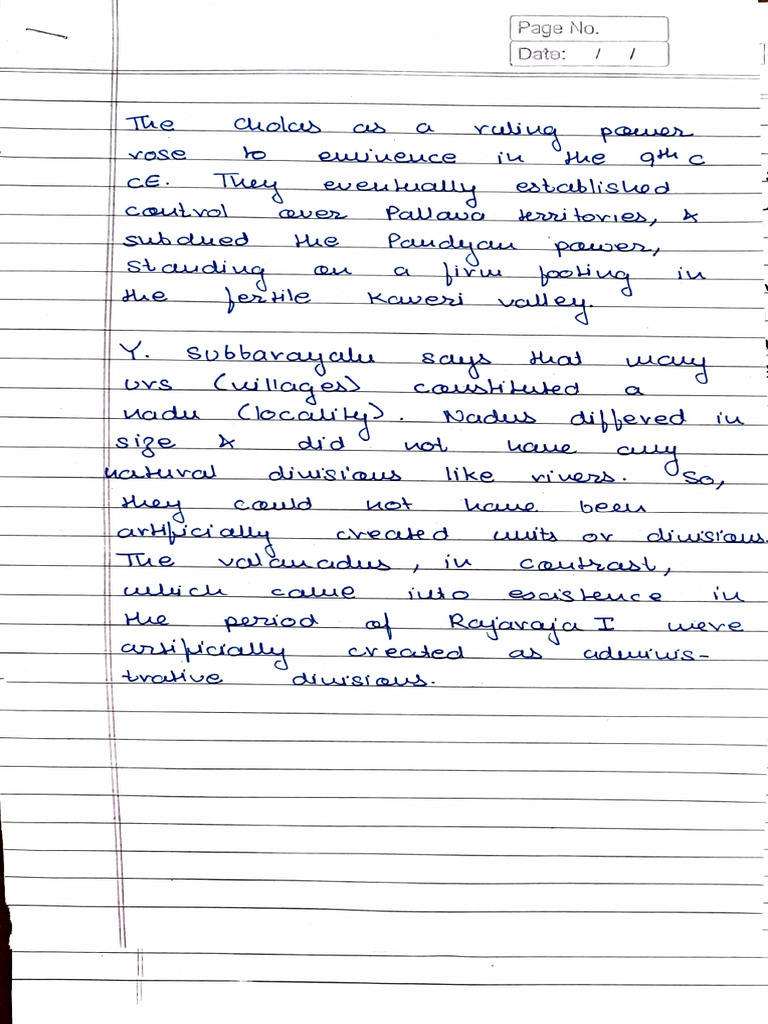 Page No.
Date: / /
The Cholas as a ruling power
rose to eminence in the 9th c
CE. They eventually established
control over Pallava territories, &
subdued the Pandyan power,
standing on a firm footing in
the fertile Kaveri valley.
Y. Subbarayalu says that many
urs (villages) constituted a
nadu (locality). Nadus differed in
size & did not have any
natural divisions like rivers. So,
they could not have been
artificially created units or divisions.
The valanadus, in contrast,
which came into existence in
the period of Rajaraja I were
artificially created as adminis-
trative divisions.